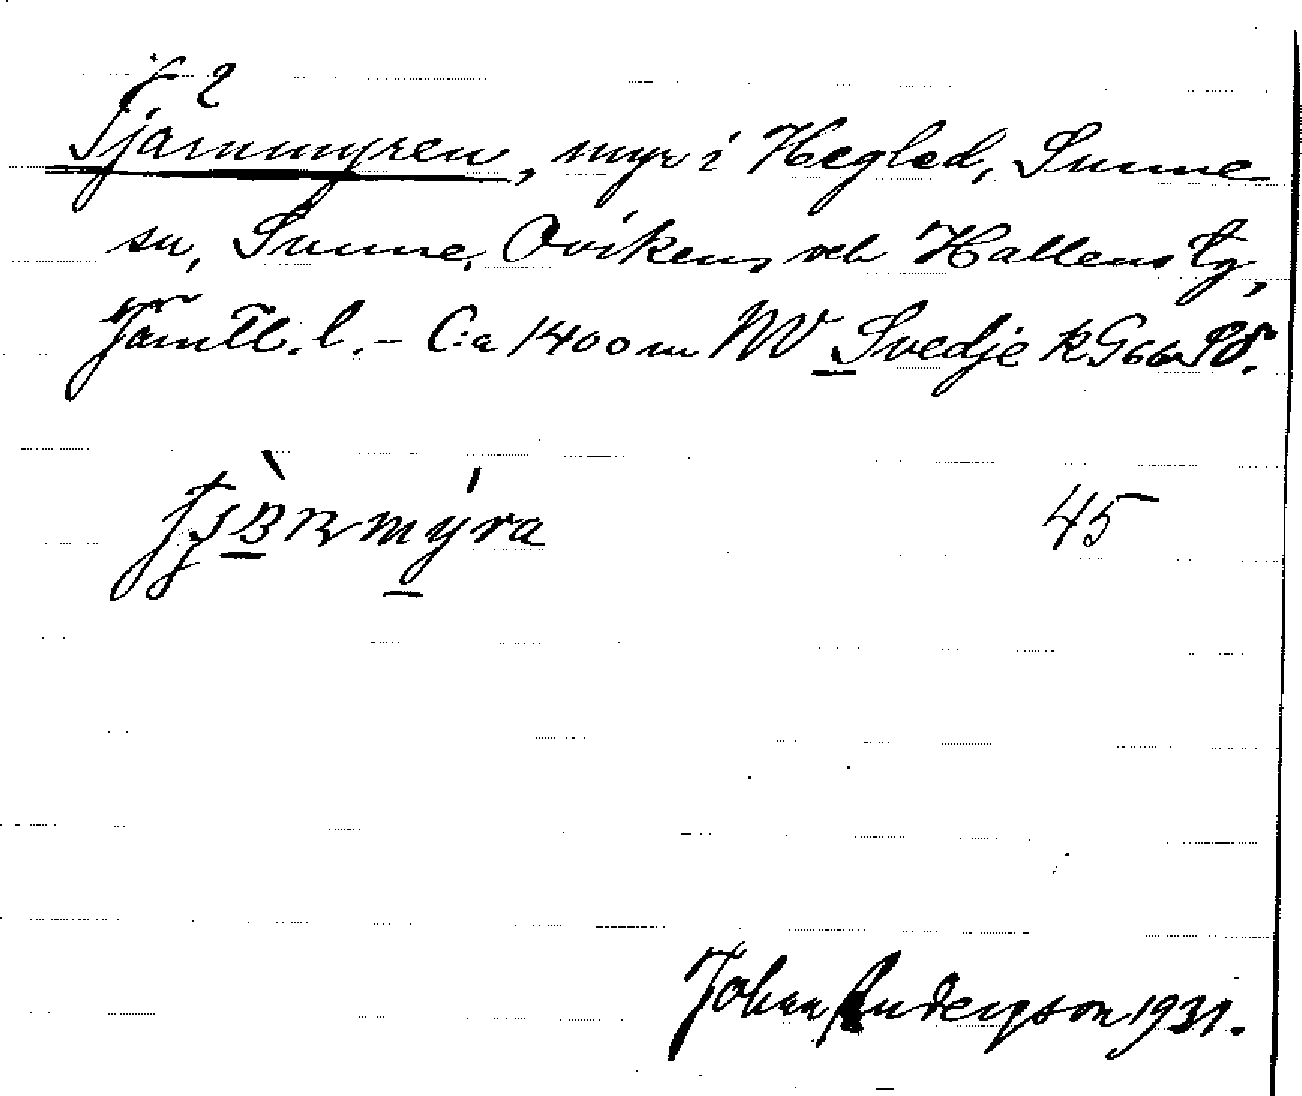 Tjärnmyren, myr i Hegled, Sunne
sn, Sunne, Ovikens och Hallens tg,
Jämtl. l. - C:a 1400 m NV Svedje
mýra 45
Johan Anderson 1931.